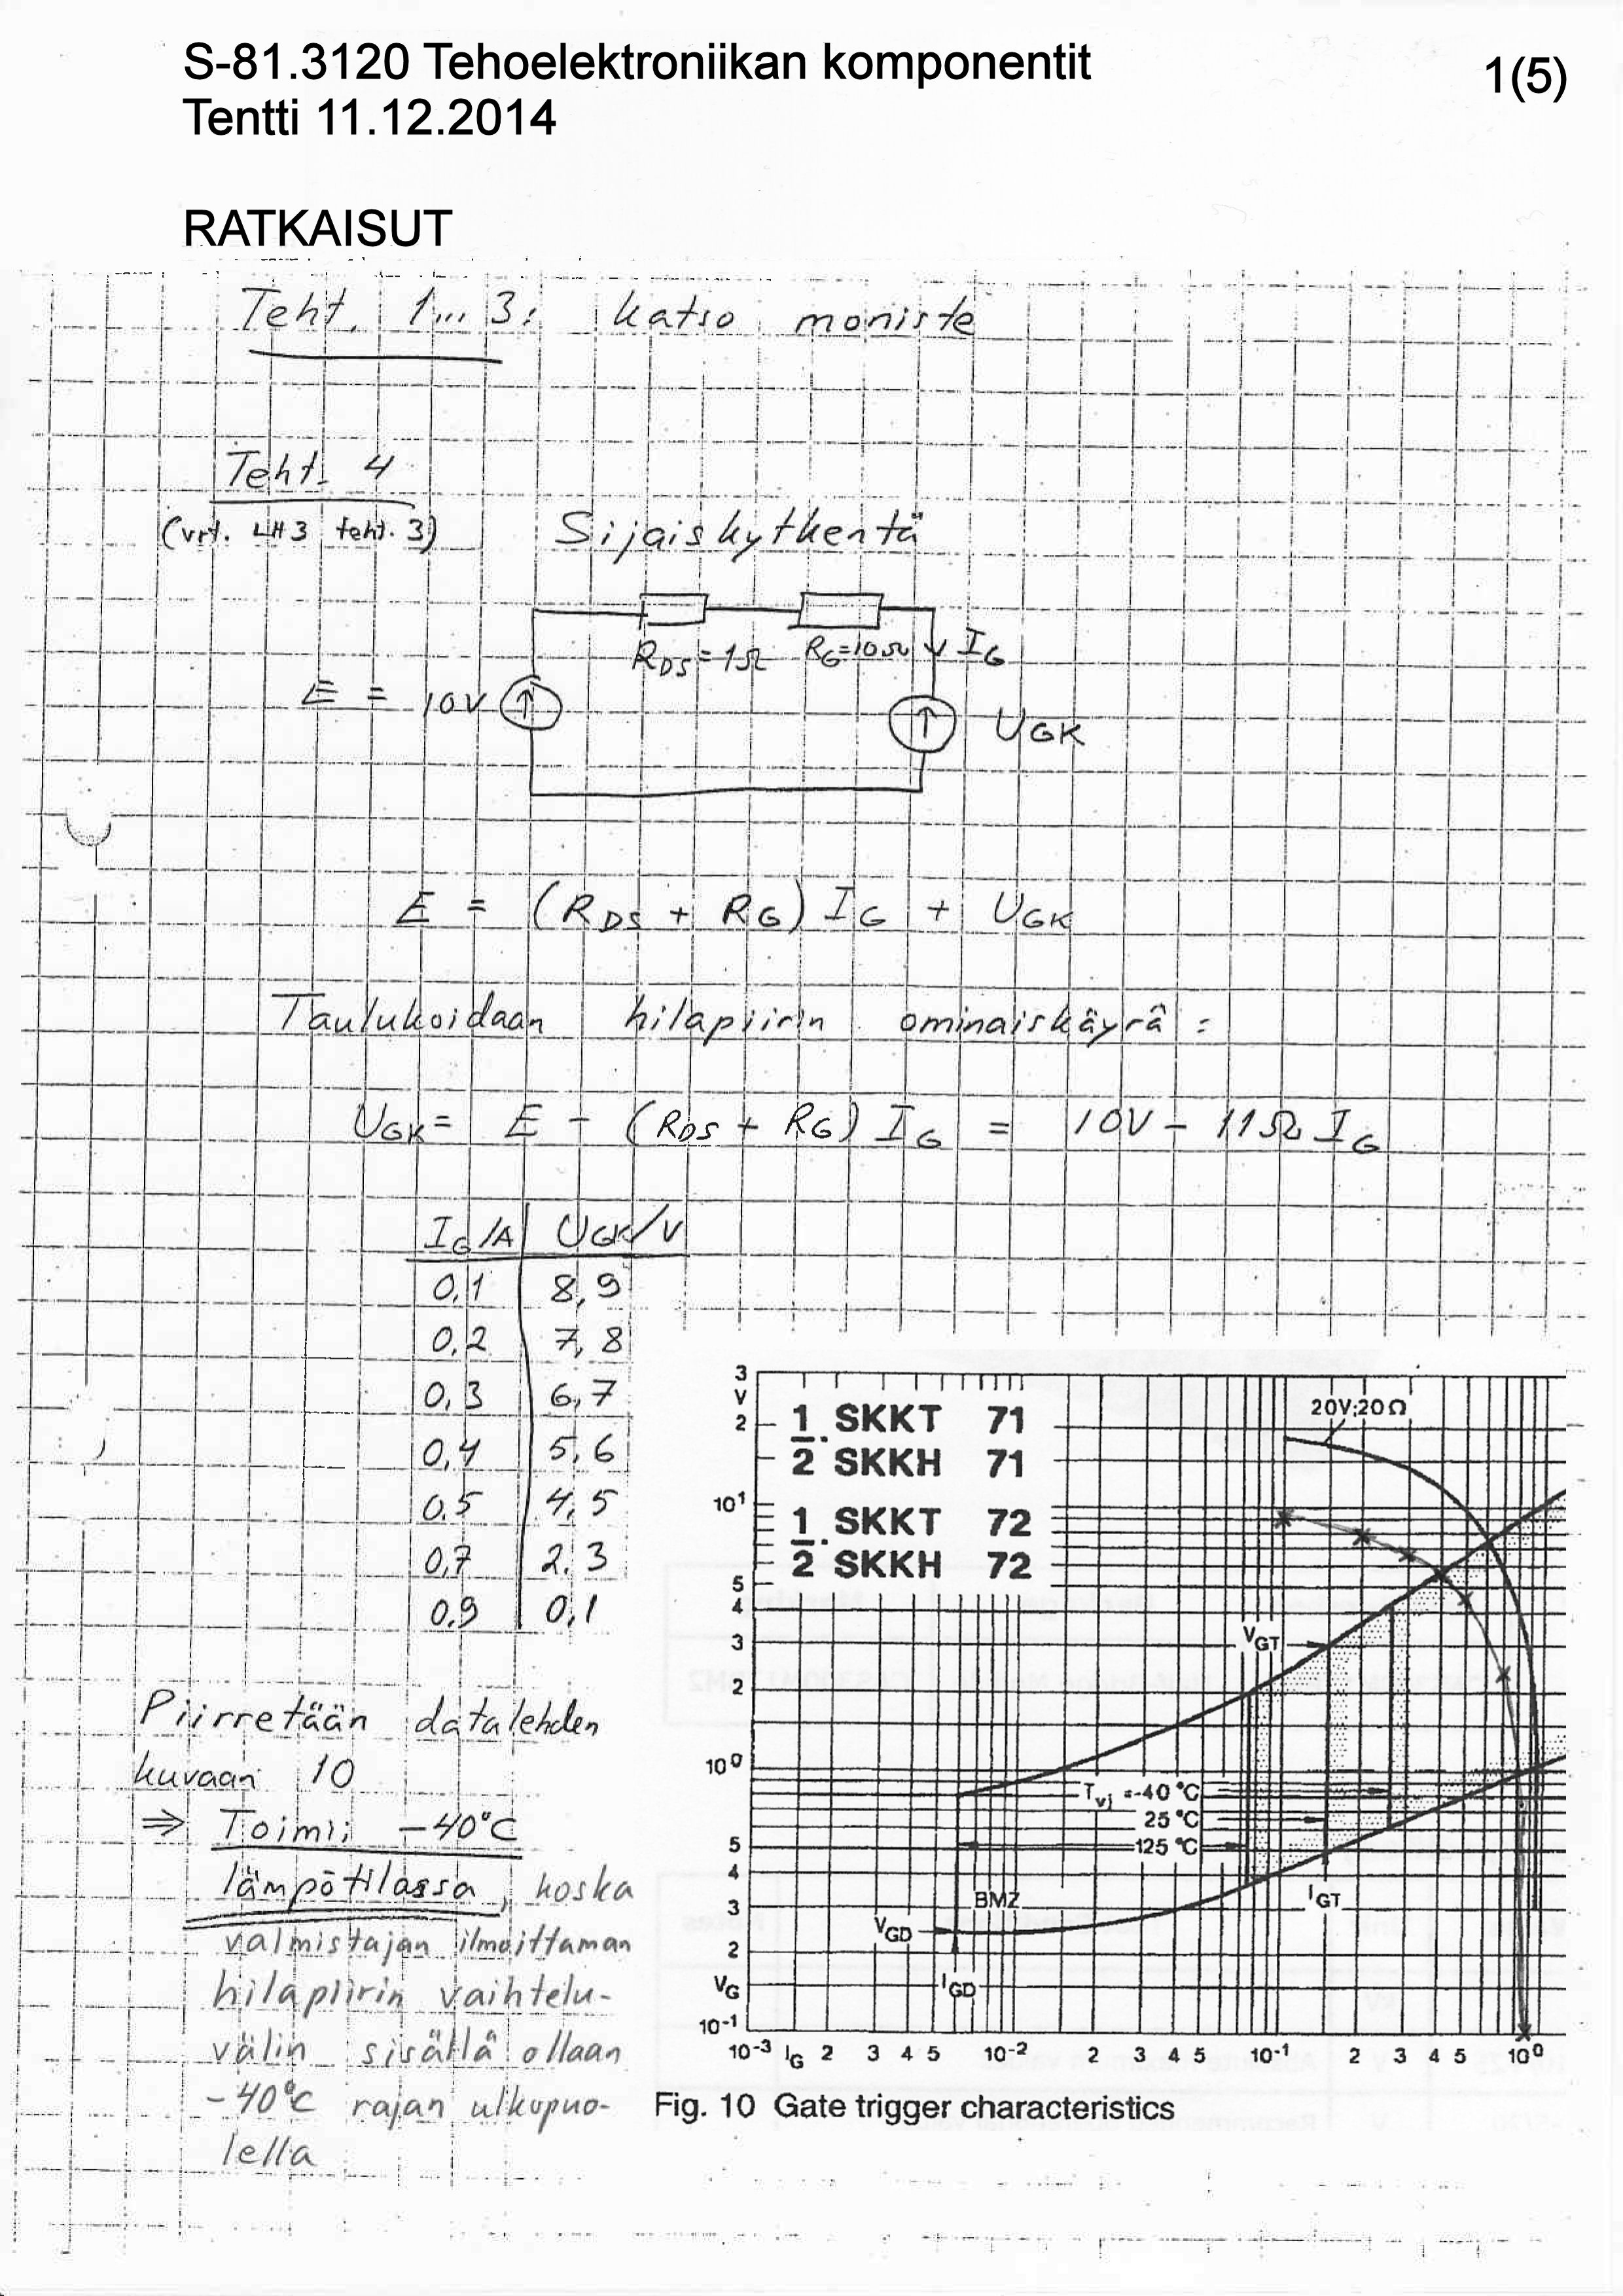 S-81.3120 Tehoelektroniikan komponentit
1(5)
Tentti 11.12.2014
RATKAISUT
Teht. 1... 3: katso moniste
Teht. 4
(vrt. LH3 teht. 3)
Sijaiskytkentä
RDS = 1Ω RG=10Ω IG
E = 10V
UGK
E = (RDS + RG) IG + UGK
Taulukoidaan hilapiirin ominaiskäyrä :
UGK = E - (RDS + RG) IG = 10V - 11Ω IG
IG/A UGK/V
0,1 8,9
0,2 7,8
0,3 6,7
0,4 5,6
0,5 4,5
0,7 2,3
0,9 0,1
Piirretään datalehden
kuvaan 10
⇒ Toimii -40°C
lämpötilassa, koska
valmistajan ilmoittaman
hilapiirin vaihtelu-
välin sisällä ollaan
-40°C rajan ulkopuo-
lella
3
V
2
10¹
5
4
3
2
10⁰
5
4
3
2
VG
10⁻¹
1/2 . SKKT 71
SKKH 71
1/2 . SKKT 72
SKKH 72
20V;20Ω
VGT
Tvj =-40 °C
25 °C
125 °C
BMZ
IGT
VGD
IGD
10⁻³ IG 2 3 4 5 10⁻² 2 3 4 5 10⁻¹ 2 3 4 5 10⁰
Fig. 10 Gate trigger characteristics